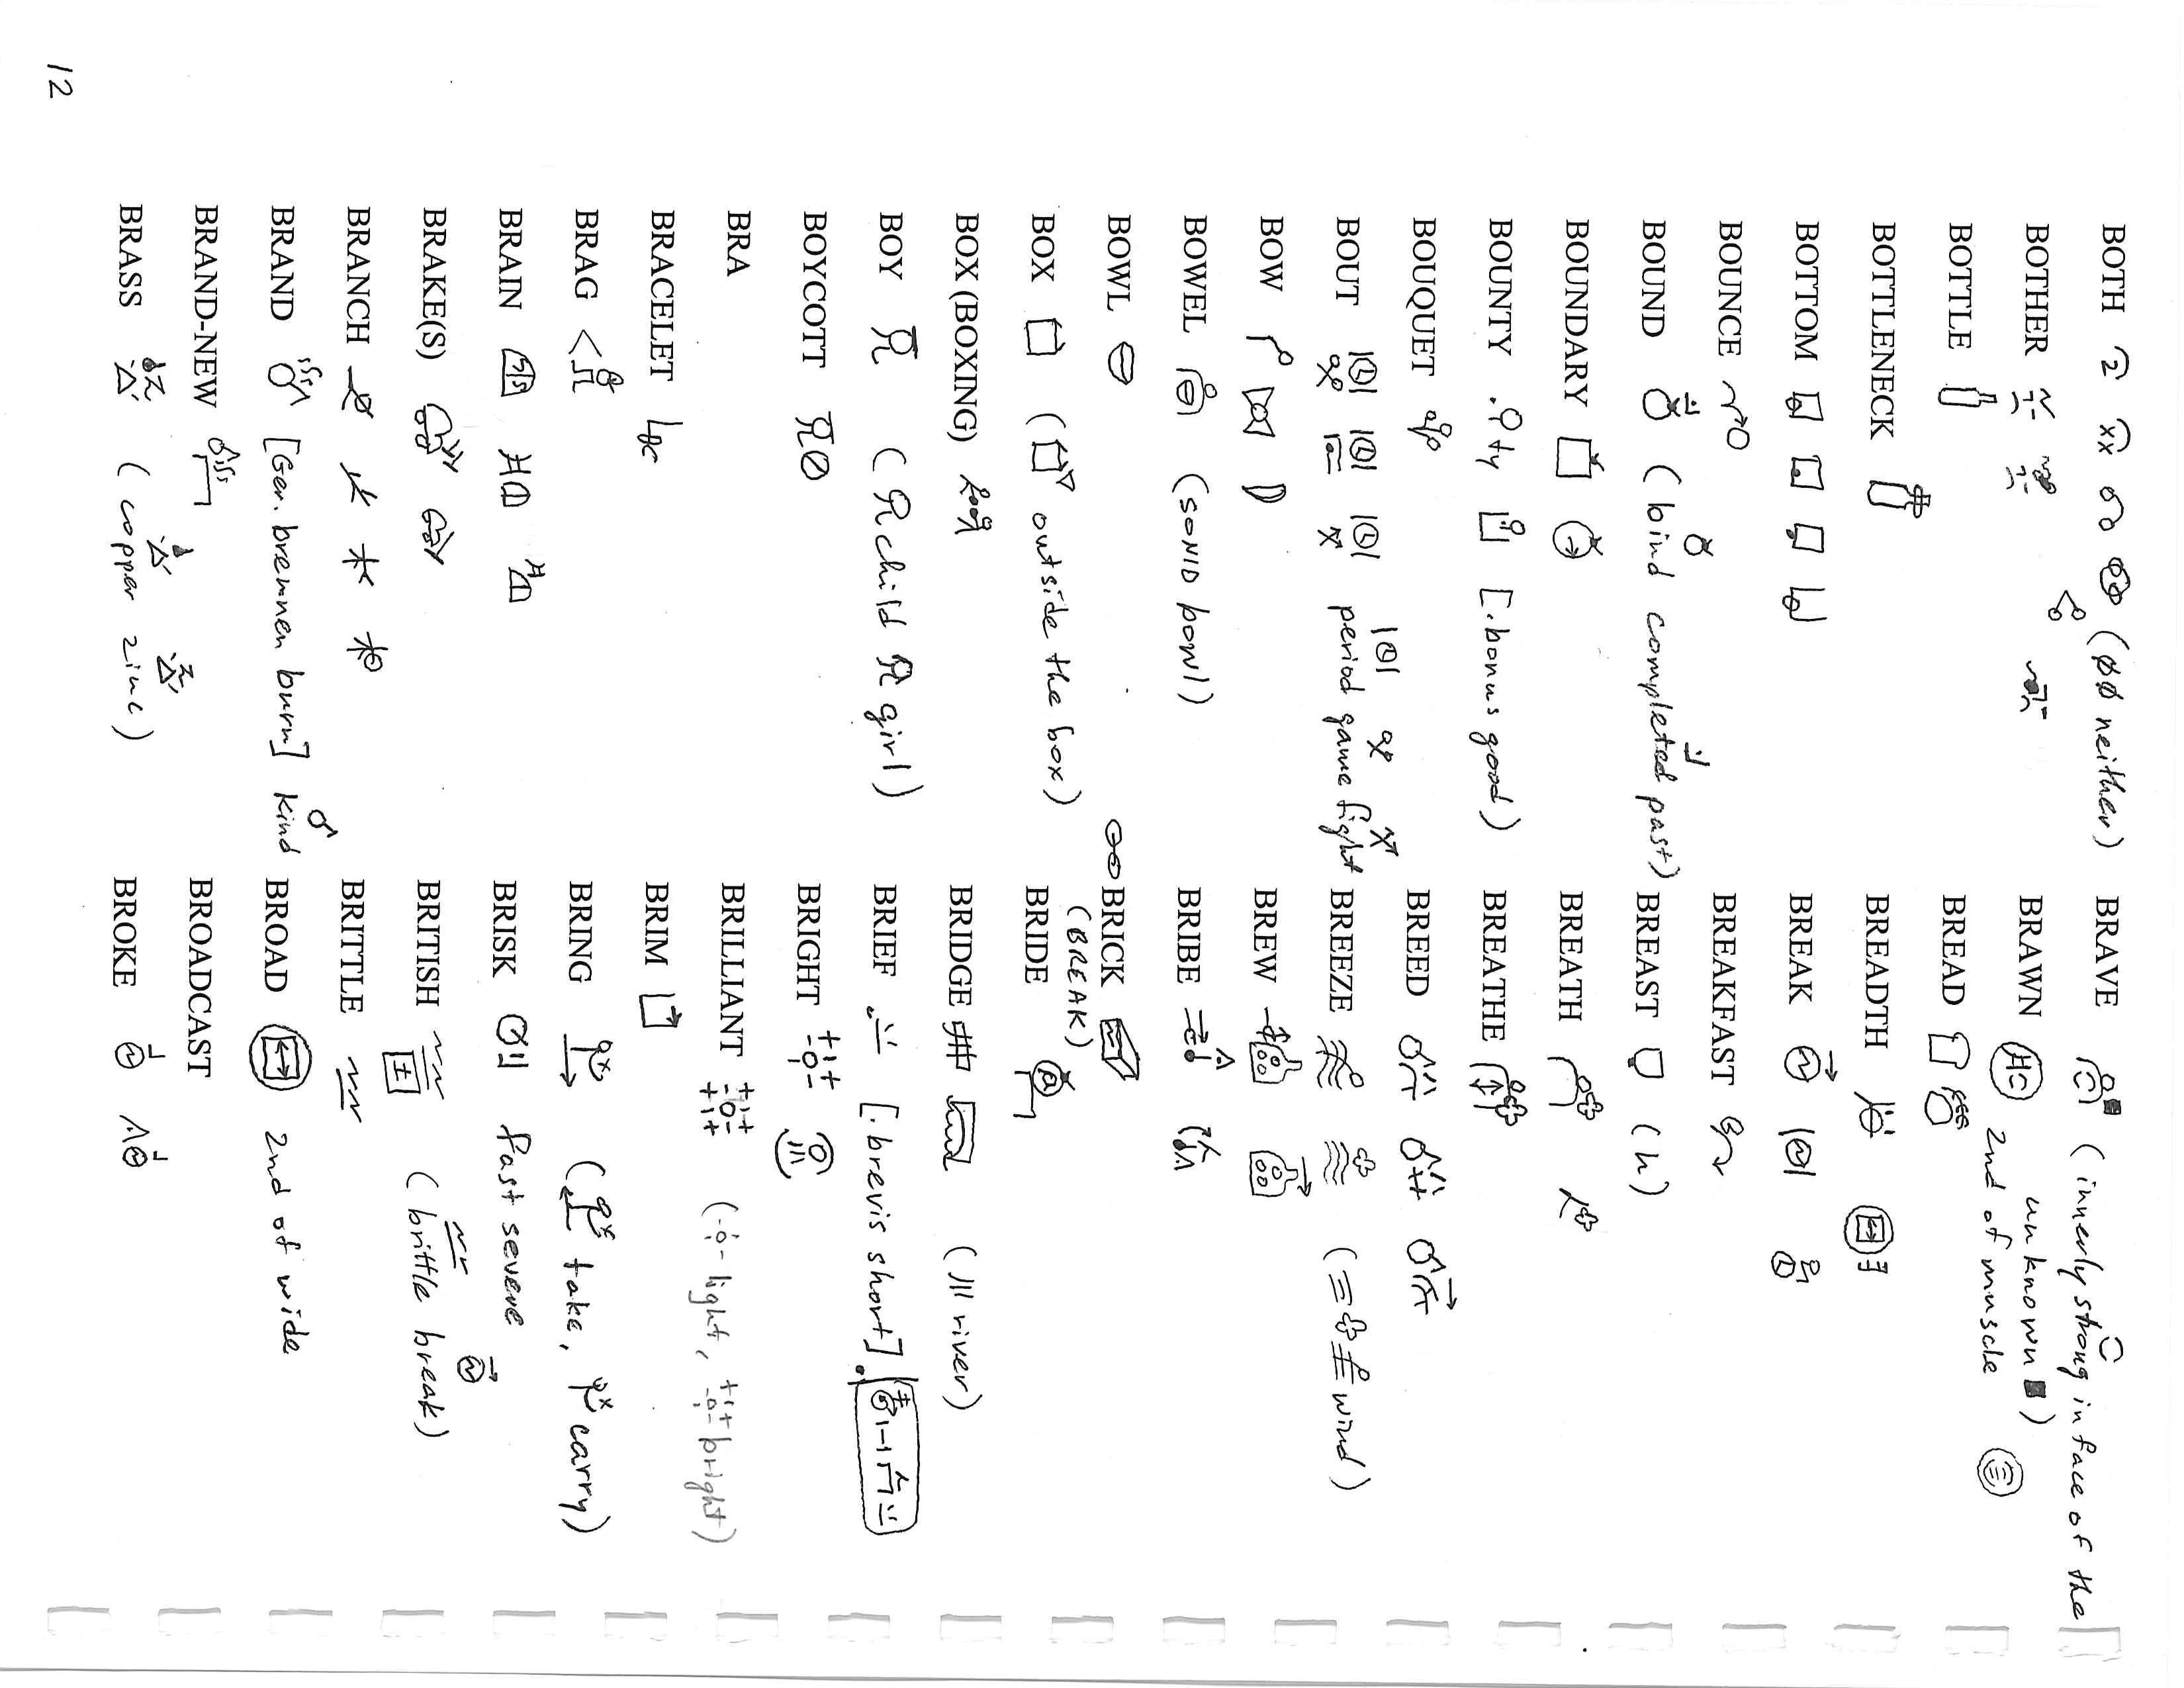 BOTH 2 xx (neither)
BOTHER
BOTTLE
BOTTLENECK
BOTTOM
BOUNCE
BOUND (bind completed past)
BOUNDARY
BOUNTY ty [.bonus good)
BOUQUET
BOUT period game fight
BOW
BOWEL (SOND bowl)
BOWL
BOX ( outside the box)
BOX (BOXING)
BOY ( child girl)
BOYCOTT
BRA
BRACELET
BRAG
BRAIN
BRAKE(S)
BRANCH
BRAND [Ger. brennen burn] kind
BRAND-NEW
BRASS ( copper zinc )
BRAVE (innerly strong in face of the
unknown )
BRAWN 2nd of muscle
BREAD
BREADTH
BREAK
BREAKFAST
BREAST (h)
BREATH
BREATHE
BREED
BREEZE ( wind)
BREW
BRIBE
BRICK
(BREAK)
BRIDE
BRIDGE ( river)
BRIEF [.brevis short]
BRIGHT
BRILLIANT ( light, bright)
BRIM
BRING ( take, carry)
BRISK fast severe
BRITISH (brittle break)
BRITTLE
BROAD 2nd of wide
BROADCAST
BROKE
12